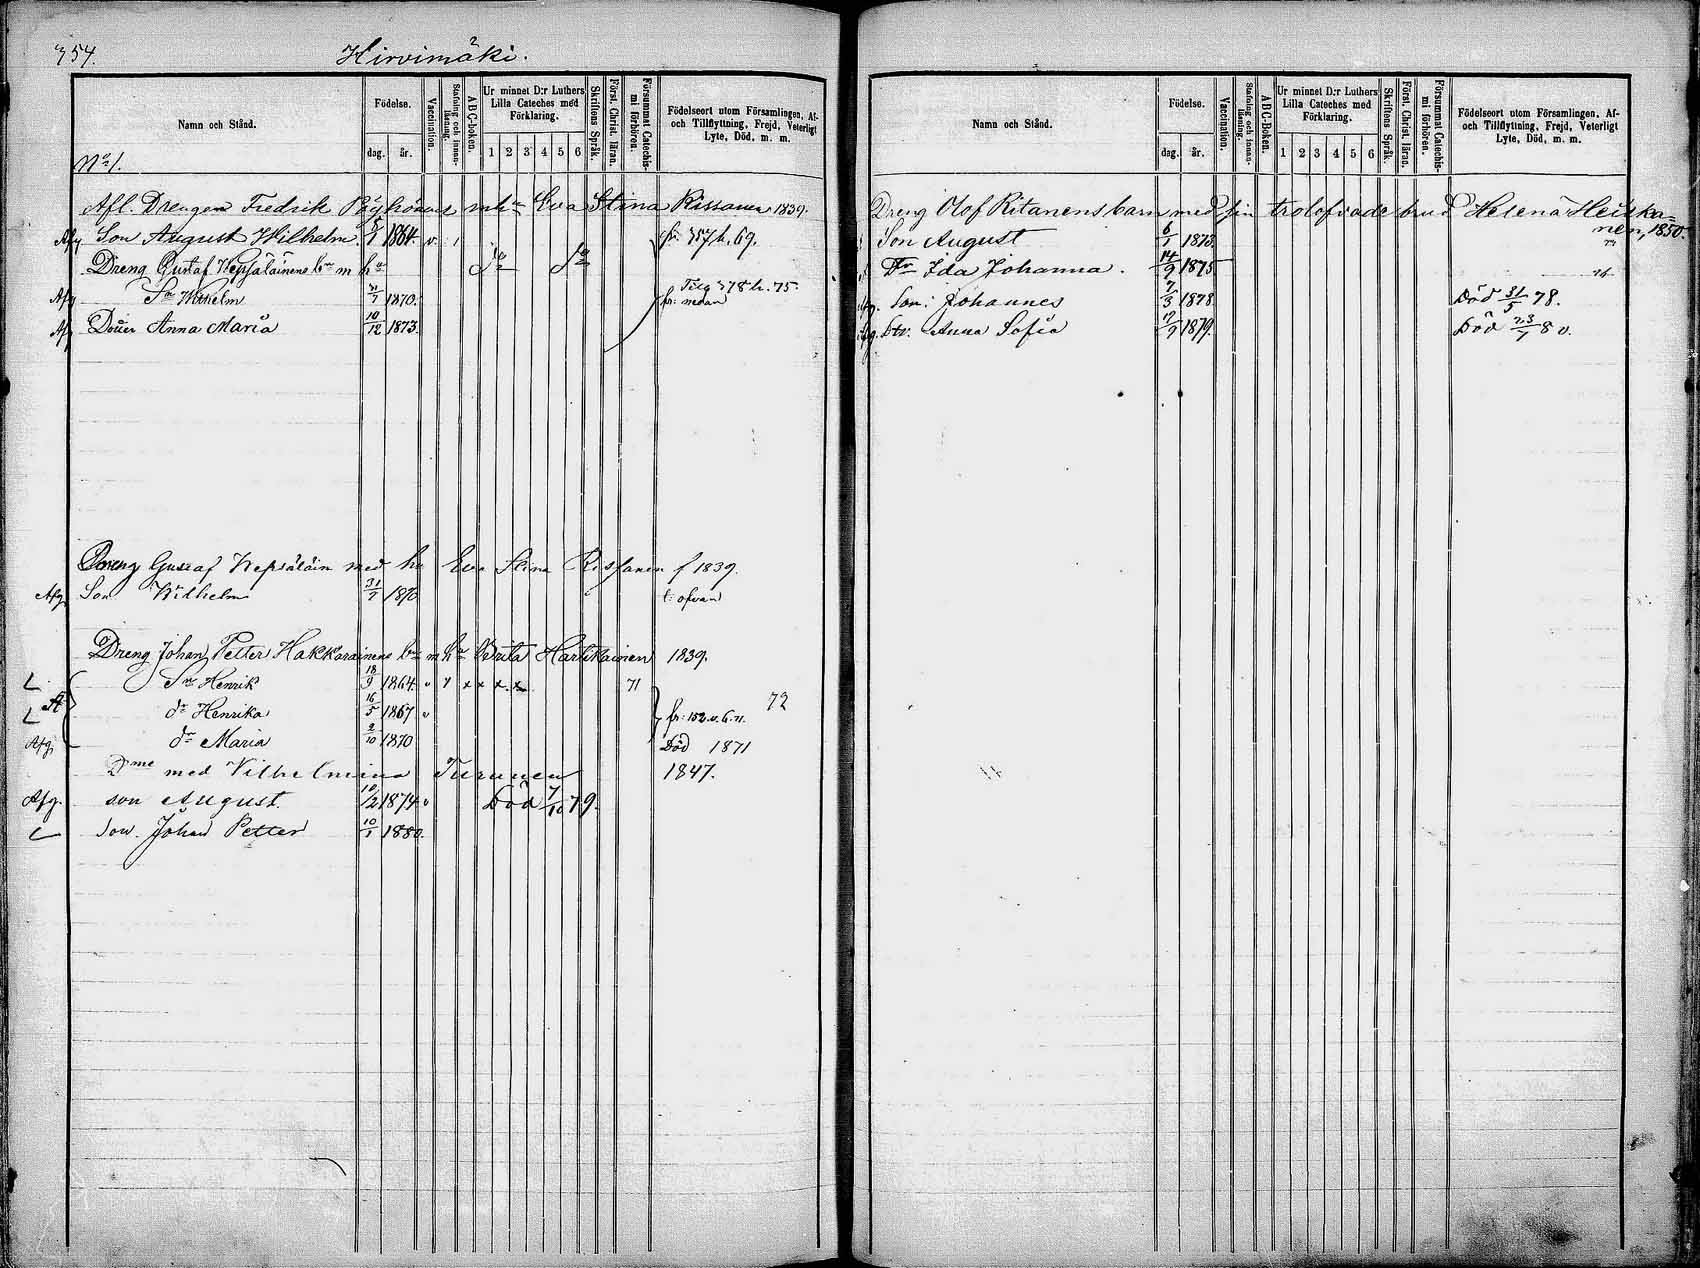 354.
Hirvimäki.
Namn och Stånd.
Födelse.
dag.
år.
Vaccination.
Stafning och innanläsning.
ABC-boken.
Ur minnet D:r Luthers Lilla Cateches med Förklaring.
1 2 3 4 5 6
Skriftens Språk.
Först. Christ. läran.
Försummat Catechismi förhören.
Födelseort utom Församlingen, Af- och Tillflyttning, Frejd, Veterligt Lyte, Död, m. m.
No 1.
Afl. Drengen Fredrik mhu Eva Stina Rissanen 1839.
Afg Son August Wilhelm 1864. v fr. 357 h. 69.
Dreng Gustaf Hepsäläinens bn m hu do do
Afg Sn Wilhelm 31/7 1870. 378 h. 75.
fr: nedan
Afg Dotter Anna Maria 10/12 1873.
Dreng Gustaf Hepsäläin med hu Eva Stina Rissanen f 1839.
Afg Son Wilhelm 31/7 1870 t: ofvan
Dreng Johan Petter Hakkarainens bn m hu Brita Hartikainen 1839.
Sn Henrik 18/9 1864. v x x x x 71
dr Henrika 16/5 1867 v fr: 152. v. 6. 71. 72
Afg. dr Maria 2/10 1870 Död 1871
Dme med Vilhelmina Turunen 1847.
Afg. son August 10/2 1874 v Död 7/10 79.
Son. Johan Petter 10/1 1880.
Namn och Stånd.
Födelse.
dag.
år.
Vaccination.
Stafning och innanläsning.
ABC-boken.
Ur minnet D:r Luthers Lilla Cateches med Förklaring.
1 2 3 4 5 6
Skriftens Språk.
Först. Christ. läran.
Försummat Catechismi förhören.
Födelseort utom Församlingen, Af- och Tillflyttning, Frejd, Veterligt Lyte, Död, m. m.
Dreng Olof Ritanens barn med sin trolofvade brud Helena Heiskanen, 1850.
Son August 6/1 1873.
Dr Ida Johanna. 14/9 1875
Son: Johannes 7/3 1878. Död 31/5 78.
Dtr. Anna Sofia 17/9 1879. Död 23/1 80.